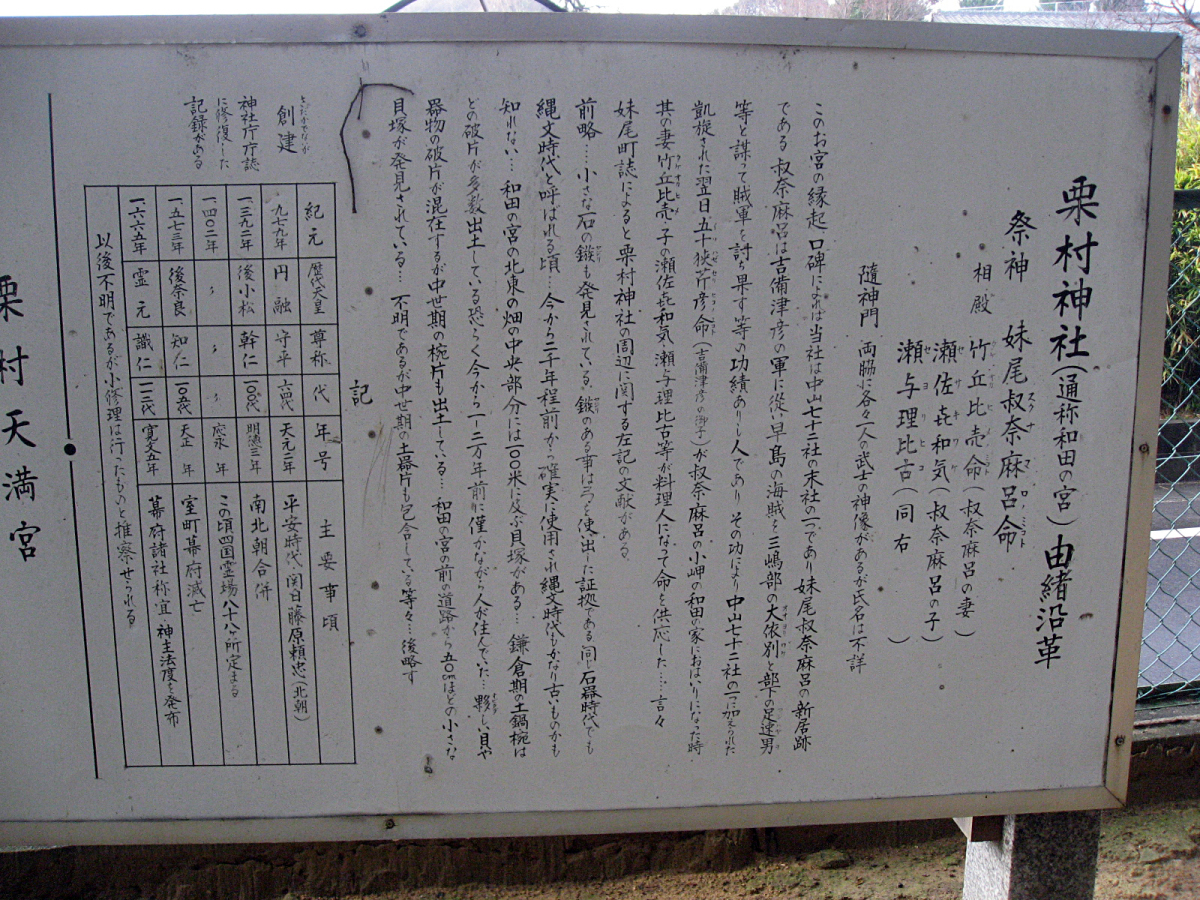 栗村神社(通称和田の宮)由緒沿革
祭神 妹尾叔奈麻呂命
スクナ マ ロノミコト
相殿 竹丘比売命(叔奈麻呂の妻)
瀬佐㐂和気(叔奈麻呂の子)
セサキワケ
瀬与理比古(同右)
セヨリヒコ
随神門 両脇に各々一人の武士の神像があるが氏名は不詳
このお宮の縁起口碑によれば当社は中山七十二社の末社の一つであり妹尾叔奈麻呂の新居跡
である 叔奈麻呂は吉備津彦の軍に従い早島の海賊を三嶋部の大依別と部下の足速男
等と謀って賊軍を討ち果す等の功績ありし人であり その功により中山七十二社の一つに加えられた
凱旋された翌日五十狭芹彦命(吉備津彦の御子)が叔奈麻呂の小岬の和田の家におはいりになった時
其の妻竹丘比売 子の瀬佐㐂和気 瀬与理比古等が料理人になって命を供応した……言々
妹尾町誌によると栗村神社の周辺に関する左記の文献がある
前略……小さな石の鏃も発見されている。鏃のある事は弓を使出した証拠である同じ石器時代でも
縄文時代と呼ばれる頃…今から二千年程前から確実に使用され縄文時代もかなり古いものかも
知れない…和田の宮の北東の畑の中央部分には一〇〇米に及ぶ貝塚がある…鎌倉期の土鍋椀は
どの破片が多数出土している恐らく今から一〜二万年前に僅かながら人が住んでいた…夥しい貝や
器物の破片が混在するが中世期の椀片も出土している…和田の宮の前の道路から五〇cmほどの小さな
貝塚が発見されている…不明であるが中世期の土器片も包合している等々…後略す
記
創建
神社庁庁誌
に修復した
記録がある
紀元 歴代天皇 尊称 代 年号 主要事項
九七九年 円融 守平 六四代 天元二年 平安時代 関白藤原頼忠(北朝)
一三九二年 後小松 幹仁 一〇〇代 明徳三年 南北朝合併
一四〇二年 〃 〃 〃 応永 年 この頃四国霊場八十八ヶ所定まる
一五七三年 後奈良 知仁 一〇五代 天正 年 室町幕府滅亡
一六六五年 霊元 識仁 一一二代 寛文五年 幕府諸社称宜・神主法度を発布
以後不明であるが小修理は行ったものと推察せられる
栗村天満宮